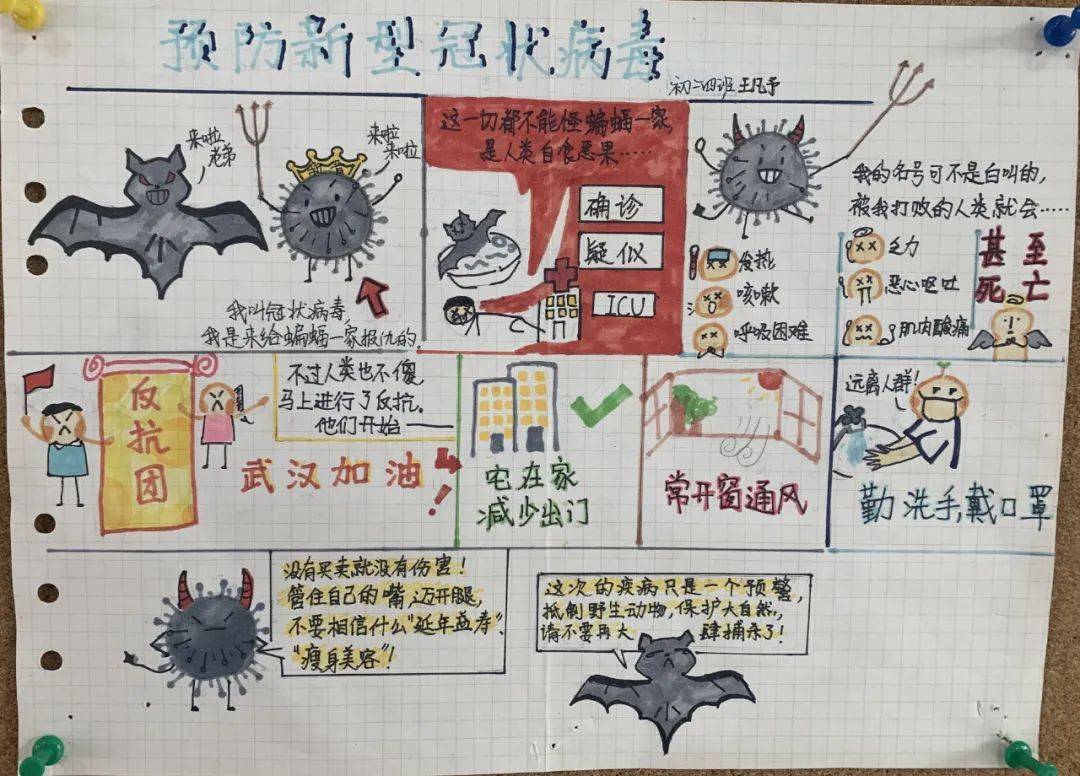 预防新型冠状病毒
初二四班 王凡予
来啦
老弟
来啦
来啦
我叫冠状病毒,
我是来给蝙蝠一家报仇的.
这一切都不能怪蝙蝠一家,
是人类自食恶果……
确诊
疑似
ICU
我的名号可不是白叫的,
被我打败的人类就会……
发热
咳嗽
呼吸困难
乏力
恶心呕吐
肌肉酸痛
甚至
死亡
反抗团
不过人类也不傻,
马上进行了反抗.
他们开始——
武汉加油!
宅在家
减少出门
常开窗通风
远离人群!
勤洗手,戴口罩
没有买卖就没有伤害!
管住自己的嘴,迈开腿,
不要相信什么“延年益寿”、
“瘦身美容”!
这次的疾病只是一个预警,
抵制野生动物,保护大自然,
请不要再大肆捕杀了!